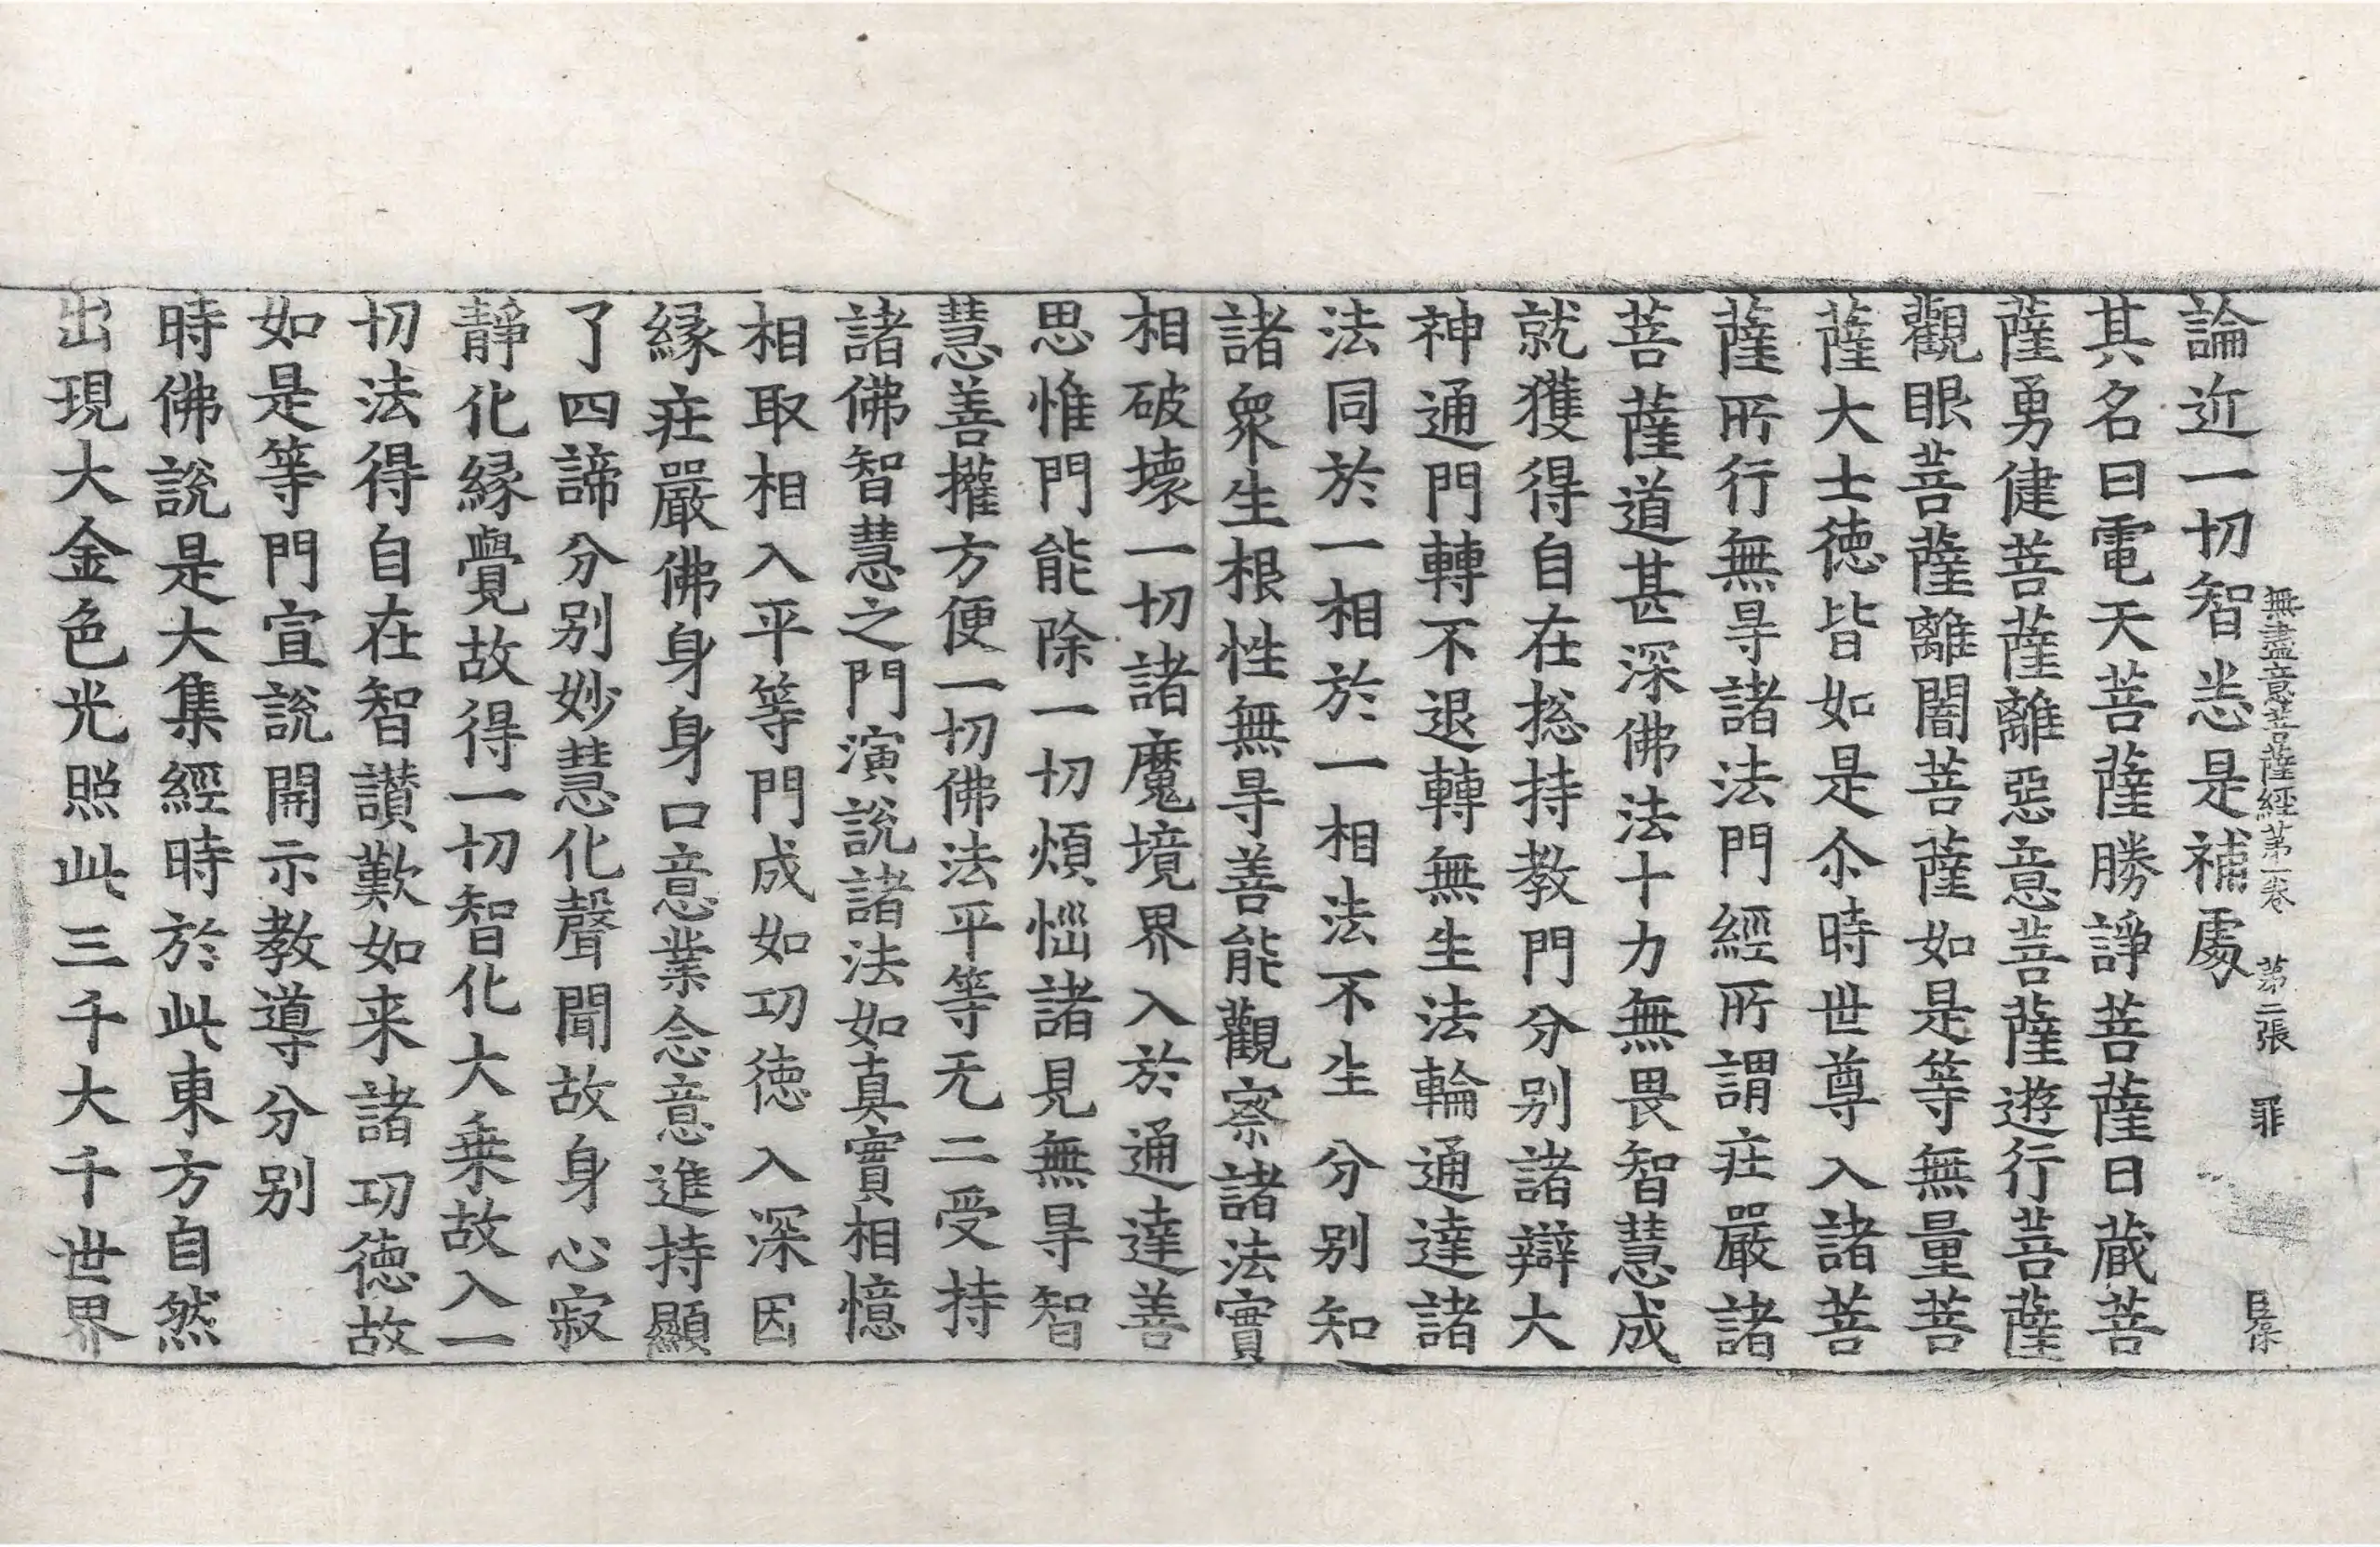 無盡意菩薩經第一卷 第二張 罪
論近一切智悉是補處
其名曰電天菩薩勝諍菩薩日蔵菩
薩勇健菩薩離惡意菩薩遊行菩薩
觀眼菩薩離闇菩薩如是等無量菩
薩大士徳皆如是尒時世尊入諸菩
薩所行無㝵諸法門經所謂莊嚴諸
菩薩道甚深佛法十力無畏智慧成
就獲得自在捴持教門分別諸辯大
神通門轉不退轉無生法輪通達諸
法同於一相於一相法不生分別知
諸衆生根性無㝵善能觀察諸法實
相破壞一切諸魔境界入於通達善
思惟門能除一切煩惱諸見無㝵智
慧善攉方便一切佛法平等无二受持
諸佛智慧之門演說諸法如真實相憶
相取相入平等門成如功徳入深因
縁莊嚴佛身身口意業念意進持顯
了四諦分別妙慧化聲聞故身心寂
靜化縁覺故得一切智化大乗故入一
切法得自在智讃歎如来諸功徳故
如是等門宣說開示教導分別
時佛說是大集經時於此東方自然
出現大金色光照此三千大千世界